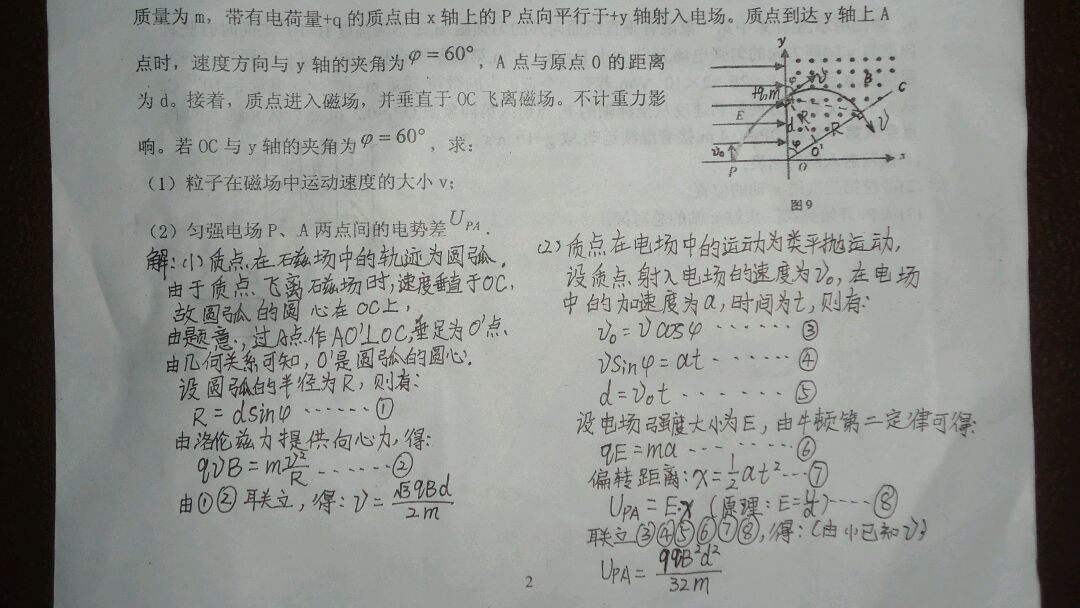 质量为 m，带有电荷量+q 的质点由 x 轴上的 P 点向平行于+y 轴射入电场。质点到达 y 轴上 A
点时，速度方向与 y 轴的夹角为φ=60°，A 点与原点 O 的距离
为 d。接着，质点进入磁场，并垂直于 OC 飞离磁场。不计重力影
响。若 OC 与 y 轴的夹角为φ=60°，求：
（1）粒子在磁场中运动速度的大小 v；
（2）匀强电场 P、A 两点间的电势差U_PA.
y
B
C
+q,m
φ
v
E
R
d
R
v
v₀
φ
O'
P
O
x
图 9
解:(1)质点在磁场中的轨迹为圆弧.
由于质点飞离磁场时,速度垂直于OC,
故圆弧的圆心在OC上,
由题意,过A点作AO'⊥OC,垂足为O'点.
由几何关系可知,O'是圆弧的圆心.
设圆弧的半径为R,则有:
R=dsinφ ······①
由洛伦兹力提供向心力,得:
qvB=mv²/R ······②
由①②联立,得:v=√3qBd/2m
(2)质点在电场中的运动为类平抛运动,
设质点射入电场的速度为v₀,在电场
中的加速度为a,时间为t,则有:
v₀=vcosφ ······③
vsinφ=at ······④
d=v₀t ······⑤
设电场强度大小为E,由牛顿第二定律可得:
qE=ma ······⑥
偏转距离:x=½at²···⑦
U_PA=E·x (原理:E=U/d)····⑧
联立③④⑤⑥⑦⑧,得:(由(1)已知v)
U_PA=9qB²d²/32m
2